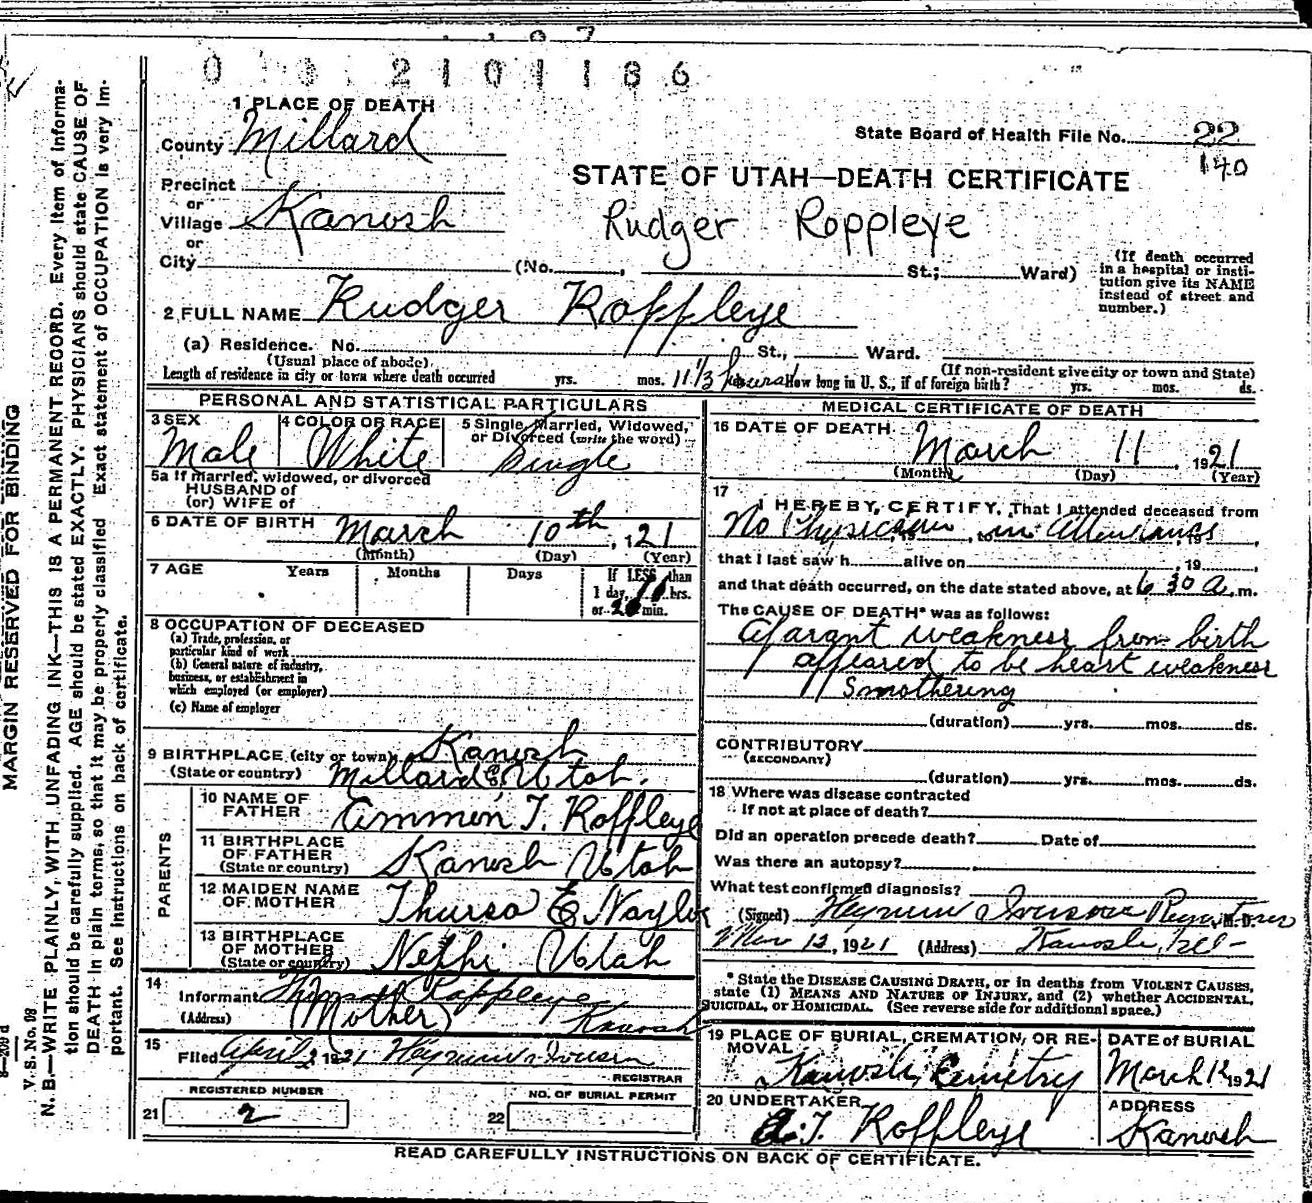 0 0 2101186
1 PLACE OF DEATH
County Millard
State Board of Health File No. 22
140
STATE OF UTAH—DEATH CERTIFICATE
Precinct
or
Village Kanosh
Rudger Roppleye
or
City (No. , St.; Ward)
(If death occurred in a hospital or institution give its NAME instead of street and number.)
2 FULL NAME Rudger Roppleye
(a) Residence. No. St., Ward.
(Usual place of abode) (If non-resident give city or town and State)
Length of residence in city or town where death occurred yrs. mos. 11 1/3 hours How long in U. S., if of foreign birth? yrs. mos. ds.
PERSONAL AND STATISTICAL PARTICULARS
3 SEX Male
4 COLOR OR RACE White
5 Single, Married, Widowed, or Divorced (write the word) Single
5a If married, widowed, or divorced
HUSBAND of
(or) WIFE of
6 DATE OF BIRTH March 10th, 121
(Month) (Day) (Year)
7 AGE Years Months Days If LESS than
1 day, 11 hrs.
or 20 min.
8 OCCUPATION OF DECEASED
(a) Trade, profession, or
particular kind of work
(b) General nature of industry,
business, or establishment in
which employed (or employer)
(c) Name of employer
9 BIRTHPLACE (city or town) Kanosh
(State or country) Millard Co Utah.
PARENTS
10 NAME OF FATHER Ammon T. Roppleye
11 BIRTHPLACE OF FATHER (State or country) Kanosh Utah
12 MAIDEN NAME OF MOTHER Thursa E Naylor
13 BIRTHPLACE OF MOTHER (State or country) Nephi Utah
14
Informant Roppleye
(Address) (Mother) Kanosh
15
Filed April 2 1921 Heyrum Iverson
REGISTRAR
REGISTERED NUMBER
21 2
NO. OF BURIAL PERMIT
22
MEDICAL CERTIFICATE OF DEATH
16 DATE OF DEATH
March 11, 1921
(Month) (Day) (Year)
17
I HEREBY CERTIFY, That I attended deceased from
No Physician in Attendance
that I last saw h alive on , 19 ,
and that death occurred, on the date stated above, at 6 30 a. m.
The CAUSE OF DEATH* was as follows:
Aparant weakness from birth
appeared to be heart weakness
Smothering
(duration) yrs. mos. ds.
CONTRIBUTORY
(SECONDARY)
(duration) yrs. mos. ds.
18 Where was disease contracted
If not at place of death?
Did an operation precede death? Date of
Was there an autopsy?
What test confirmed diagnosis?
(Signed) Heyrum Iverson Registrar, M. D.
Mar 12, 1921 (Address) Kanosh,
* State the DISEASE CAUSING DEATH, or in deaths from VIOLENT CAUSES,
state (1) MEANS AND NATURE OF INJURY, and (2) whether ACCIDENTAL,
SUICIDAL, OR HOMICIDAL. (See reverse side for additional space.)
19 PLACE OF BURIAL, CREMATION, OR REMOVAL
Kanosh, Cemetry
DATE of BURIAL
March 12 1921
20 UNDERTAKER
A. T. Roppleye
ADDRESS
Kanosh
READ CAREFULLY INSTRUCTIONS ON BACK OF CERTIFICATE.
MARGIN RESERVED FOR BINDING
V. S. No. 98
N. B.—WRITE PLAINLY, WITH UNFADING INK—THIS IS A PERMANENT RECORD. Every item of informa-
tion should be carefully supplied. AGE should be stated EXACTLY. PHYSICIANS should state CAUSE OF
DEATH in plain terms, so that it may be properly classified. Exact statement of OCCUPATION is very im-
portant. See instructions on back of certificate.